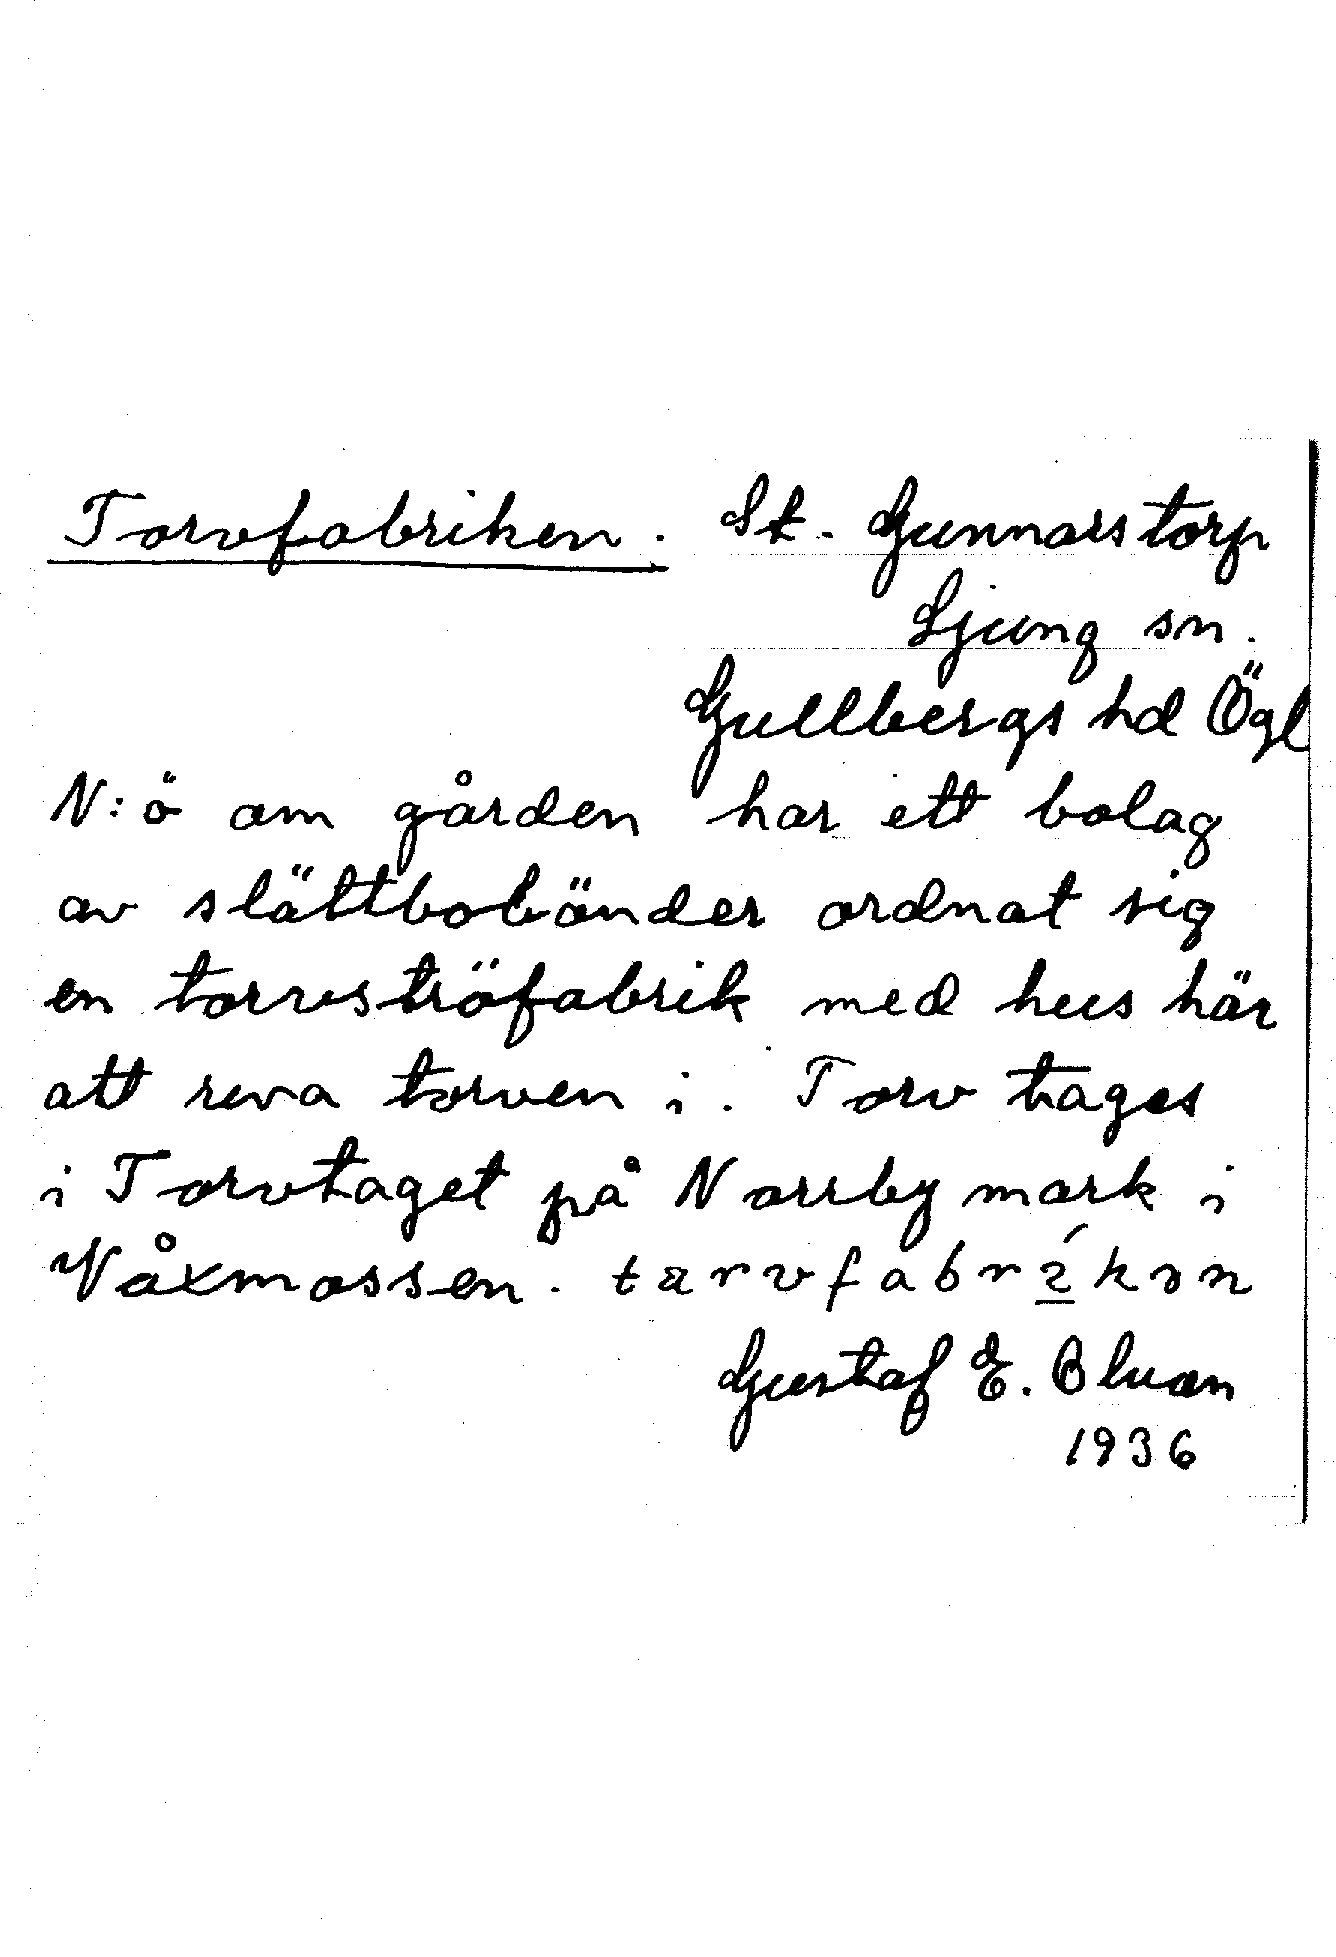 Torvfabriken. St. Gunnarstorp
Ljung sn.
Gullbergs hd Ögl
N:ö om gården har ett bolag
av slättbobönder ordnat sig
en torvströfabrik med hus här
att reva torven i. Torv tages
i Torvtaget på Norrby mark i
Våxmossen. tarvfabríkən
Gustaf E. Bluan
1936